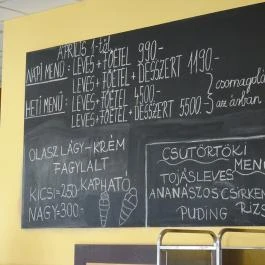 ÁPRILIS 1-TŐL
NAPI MENÜ: LEVES + FŐÉTEL 990.-
LEVES + FŐÉTEL + DESSZERT 1190.-
HETI MENÜ: LEVES + FŐÉTEL 4500.-
LEVES + FŐÉTEL + DESSZERT 5500.-
csomagolá
az árban
OLASZ LÁGY-KRÉM
FAGYLALT
KAPHATÓ
KICSI=250.-
NAGY=300.-
CSÜTÖRTÖKI
MENÜ
TOJÁSLEVES
ANANÁSZOS CSIRKEM
RIZS
PUDING